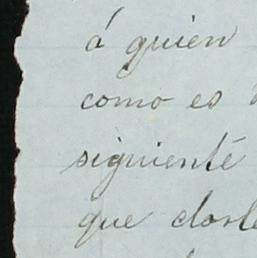 á quien
como es
siguienté
que